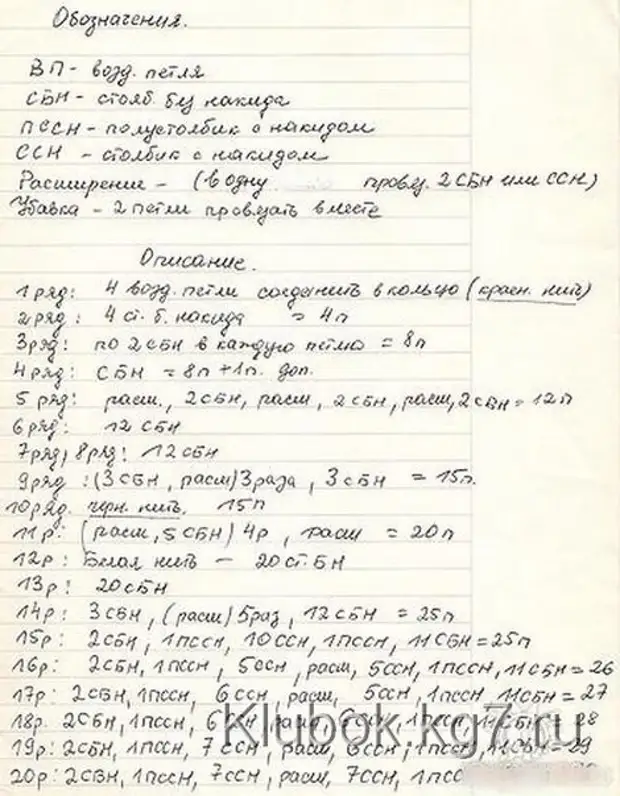 Обозначения.
ВП - возд. петля
СБН - столб. без накида
ПССН - полустолбик с накидом
ССН - столбик с накидом
Расширение - (в одну провяз. 2 СБН или ССН)
Убавка - 2 петли провязать вместе
Описание.
1 ряд: 4 возд. петли соединить в кольцо (красн. нить)
2 ряд: 4 ст. б. накида = 4п
3 ряд: по 2 СБН в каждую петлю = 8п
4 ряд: СБН = 8п + 1п. доп.
5 ряд: расш., 2 СБН, расш, 2 СБН, расш, 2 СБН = 12п
6 ряд: 12 СБН
7 ряд, 8 ряд: 12 СБН
9 ряд: (3 СБН, расш) 3 раза, 3 СБН = 15п.
10 ряд. черн. нить. 15п
11р: (расш, 5 СБН) 4р, расш = 20п
12р: Белая нить - 20 ст. БН
13р: 20 СБН
14р: 3 СБН, (расш) 5 раз, 12 СБН = 25п
15р: 2 СБН, 1 ПССН, 10 ССН, 1 ПССН, 11 СБН = 25п
16р: 2 СБН, 1 ПССН, 5 ССН, расш, 5 ССН, 1 ПССН, 11 СБН = 26
17р: 2 СБН, 1 ПССН, 6 ССН, расш, 5 ССН, 1 ПССН 11 СБН = 27
18р. 2 СБН, 1 ПССН, 6 ССН, расш, ССН, 1 ПССН 11 СБН = 28
19р: 2 СБН, 1 ПССН, 7 ССН, расш, 6 ССН, 1 ПССН, 11 СБН = 29
20р: 2 СБН, 1 ПССН, 7 ССН, расш, 7 ССН, 1 ПСС
Klubok kg7.ru